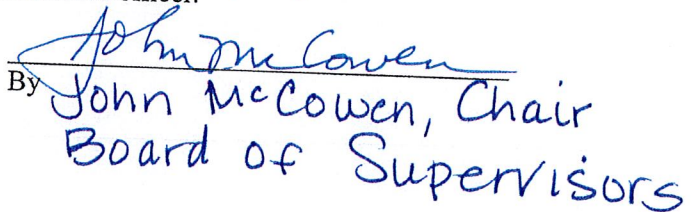 John McCowen
By John McCowen, Chair
Board of Supervisors